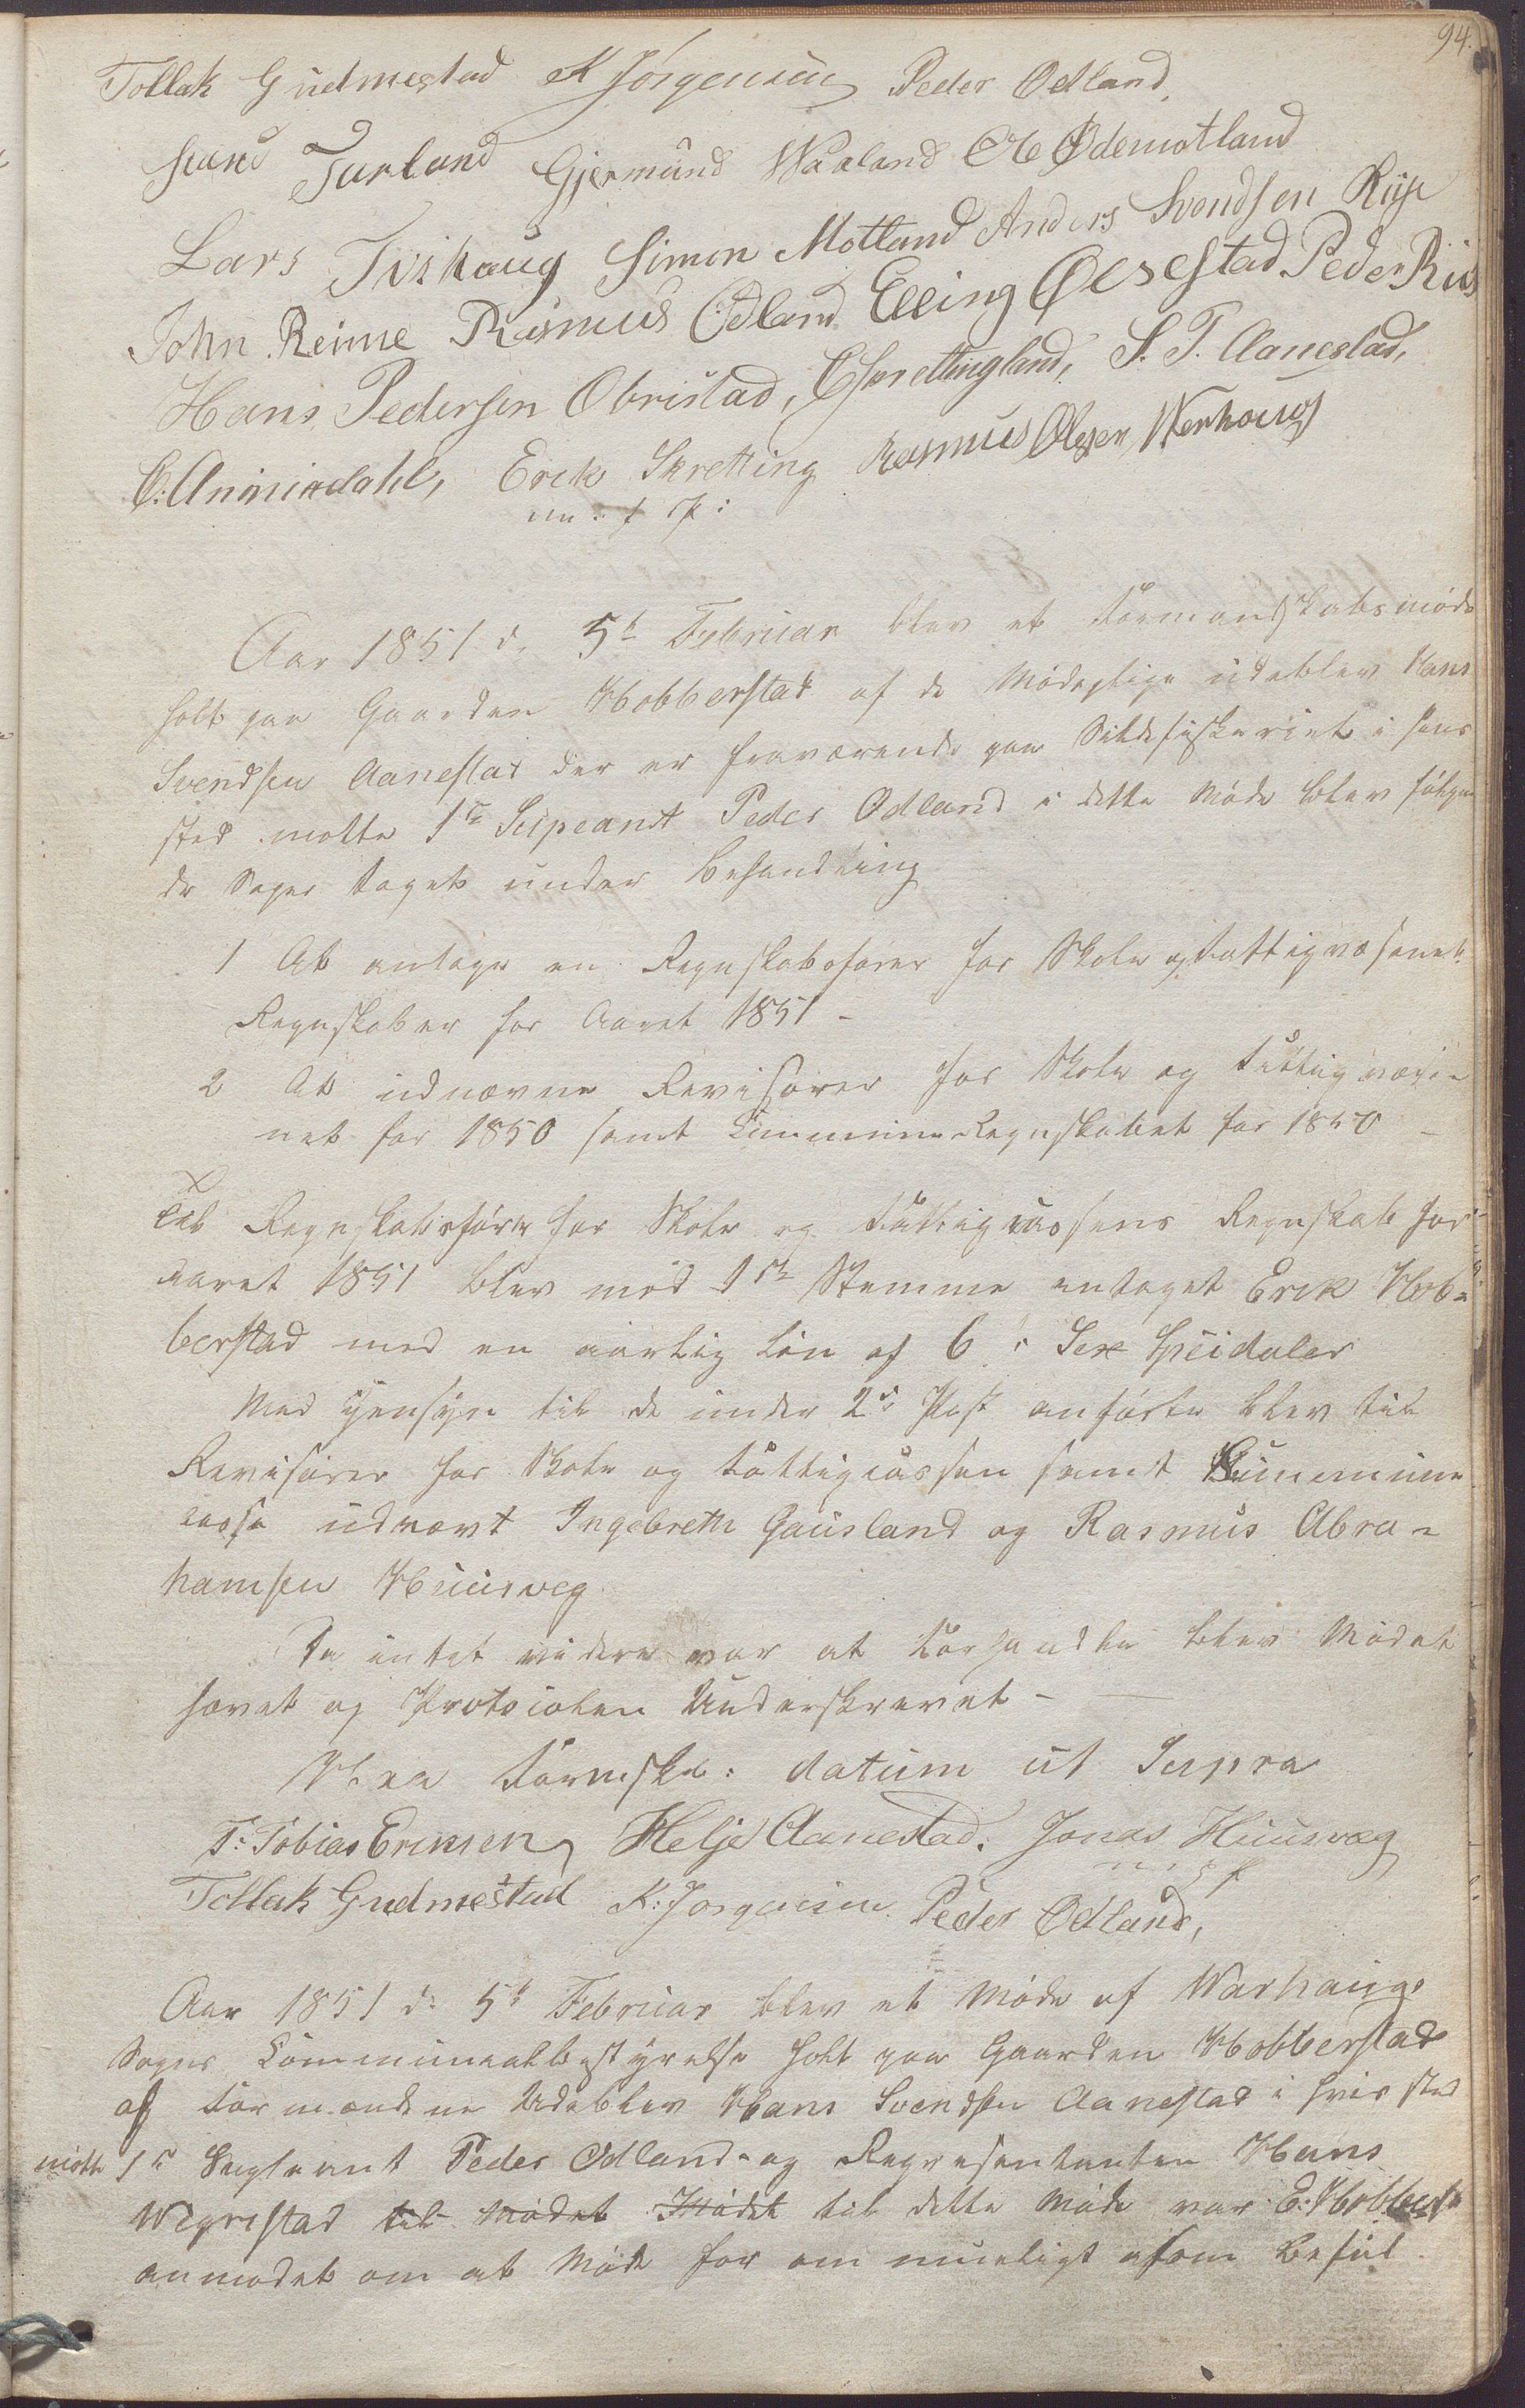 94.
Tollak Gudmestad K Jörgensen Peder Odland,
Tarland Gjermund Waaland Ole Ødemotland
Lars Tvihaug Simon Motland Anders Svendsen Riise
John Reime Rasmus Odland Elling Ølsestad Peder Riis
Hans Pedersen Obrestad, C Skrettingland, S. T. Aanestad,
C: Anniexdahl, Erek Skretting Rasmus Olsen Werhoug
m. f. P:
Aar 1851 d. 5te Februar blev et Formandskabsmøde
holt paa Gaarden Hobberstad af de Mødepligtige udeblev Hans
Svendsen Aanestad der er fraværende paa Sildefiskeriet i hans
sted mötte 1ste Supeant Peder Odland i dette Møde blev følgen
de Sager taget under behandling
1 At antage en Regnskabsfører for Skole og Fattigvæsenets
Regnskaber for Aaret 1851 -
2 At udnævne Revisorer for Skole og Fattigvæse-
net for 1850 samt Commune Regnskabet for 1850 -
Til Regnskabsfører for Skole og Fattigcassens Regnskab for
aaret 1851 blev med Stemme antaget Erik Hob-
berstad med en aarlig Løn af 6 : Sex Speidaler
Med Hensyn til de under 2den Post anførte blev til
Revisorer for Skole og Fattigcassen samt Kummune
casse udnævt Ingebreth Gausland og Rasmus Abra-
hamsen Huusveg
Da intet videre var at forhandle blev Mødet
hævet og Protocolen Underskrevet -
Haa Formsk: datum ut Supra
T: Tobias Eriksen, Helje Aanestad. Jonas Huusvæg
Tollak Gudmestad K: Jörgensen Peder Odland,
Aar 1851 d: 5te Februar blev et Møde af Warhaugs
Sogns Communeabestyrelse holt paa Gaarden Hobberstad
af Formændene Udeblev Hans Svendsen Aanestad i hvis sted
mötte 1ste Supleant Peder Odland - og Representanten Hans
Wigrestad til Mødet Mødet til dette Møde var E: Hobberst
anmodet om at Møde for om mueligt